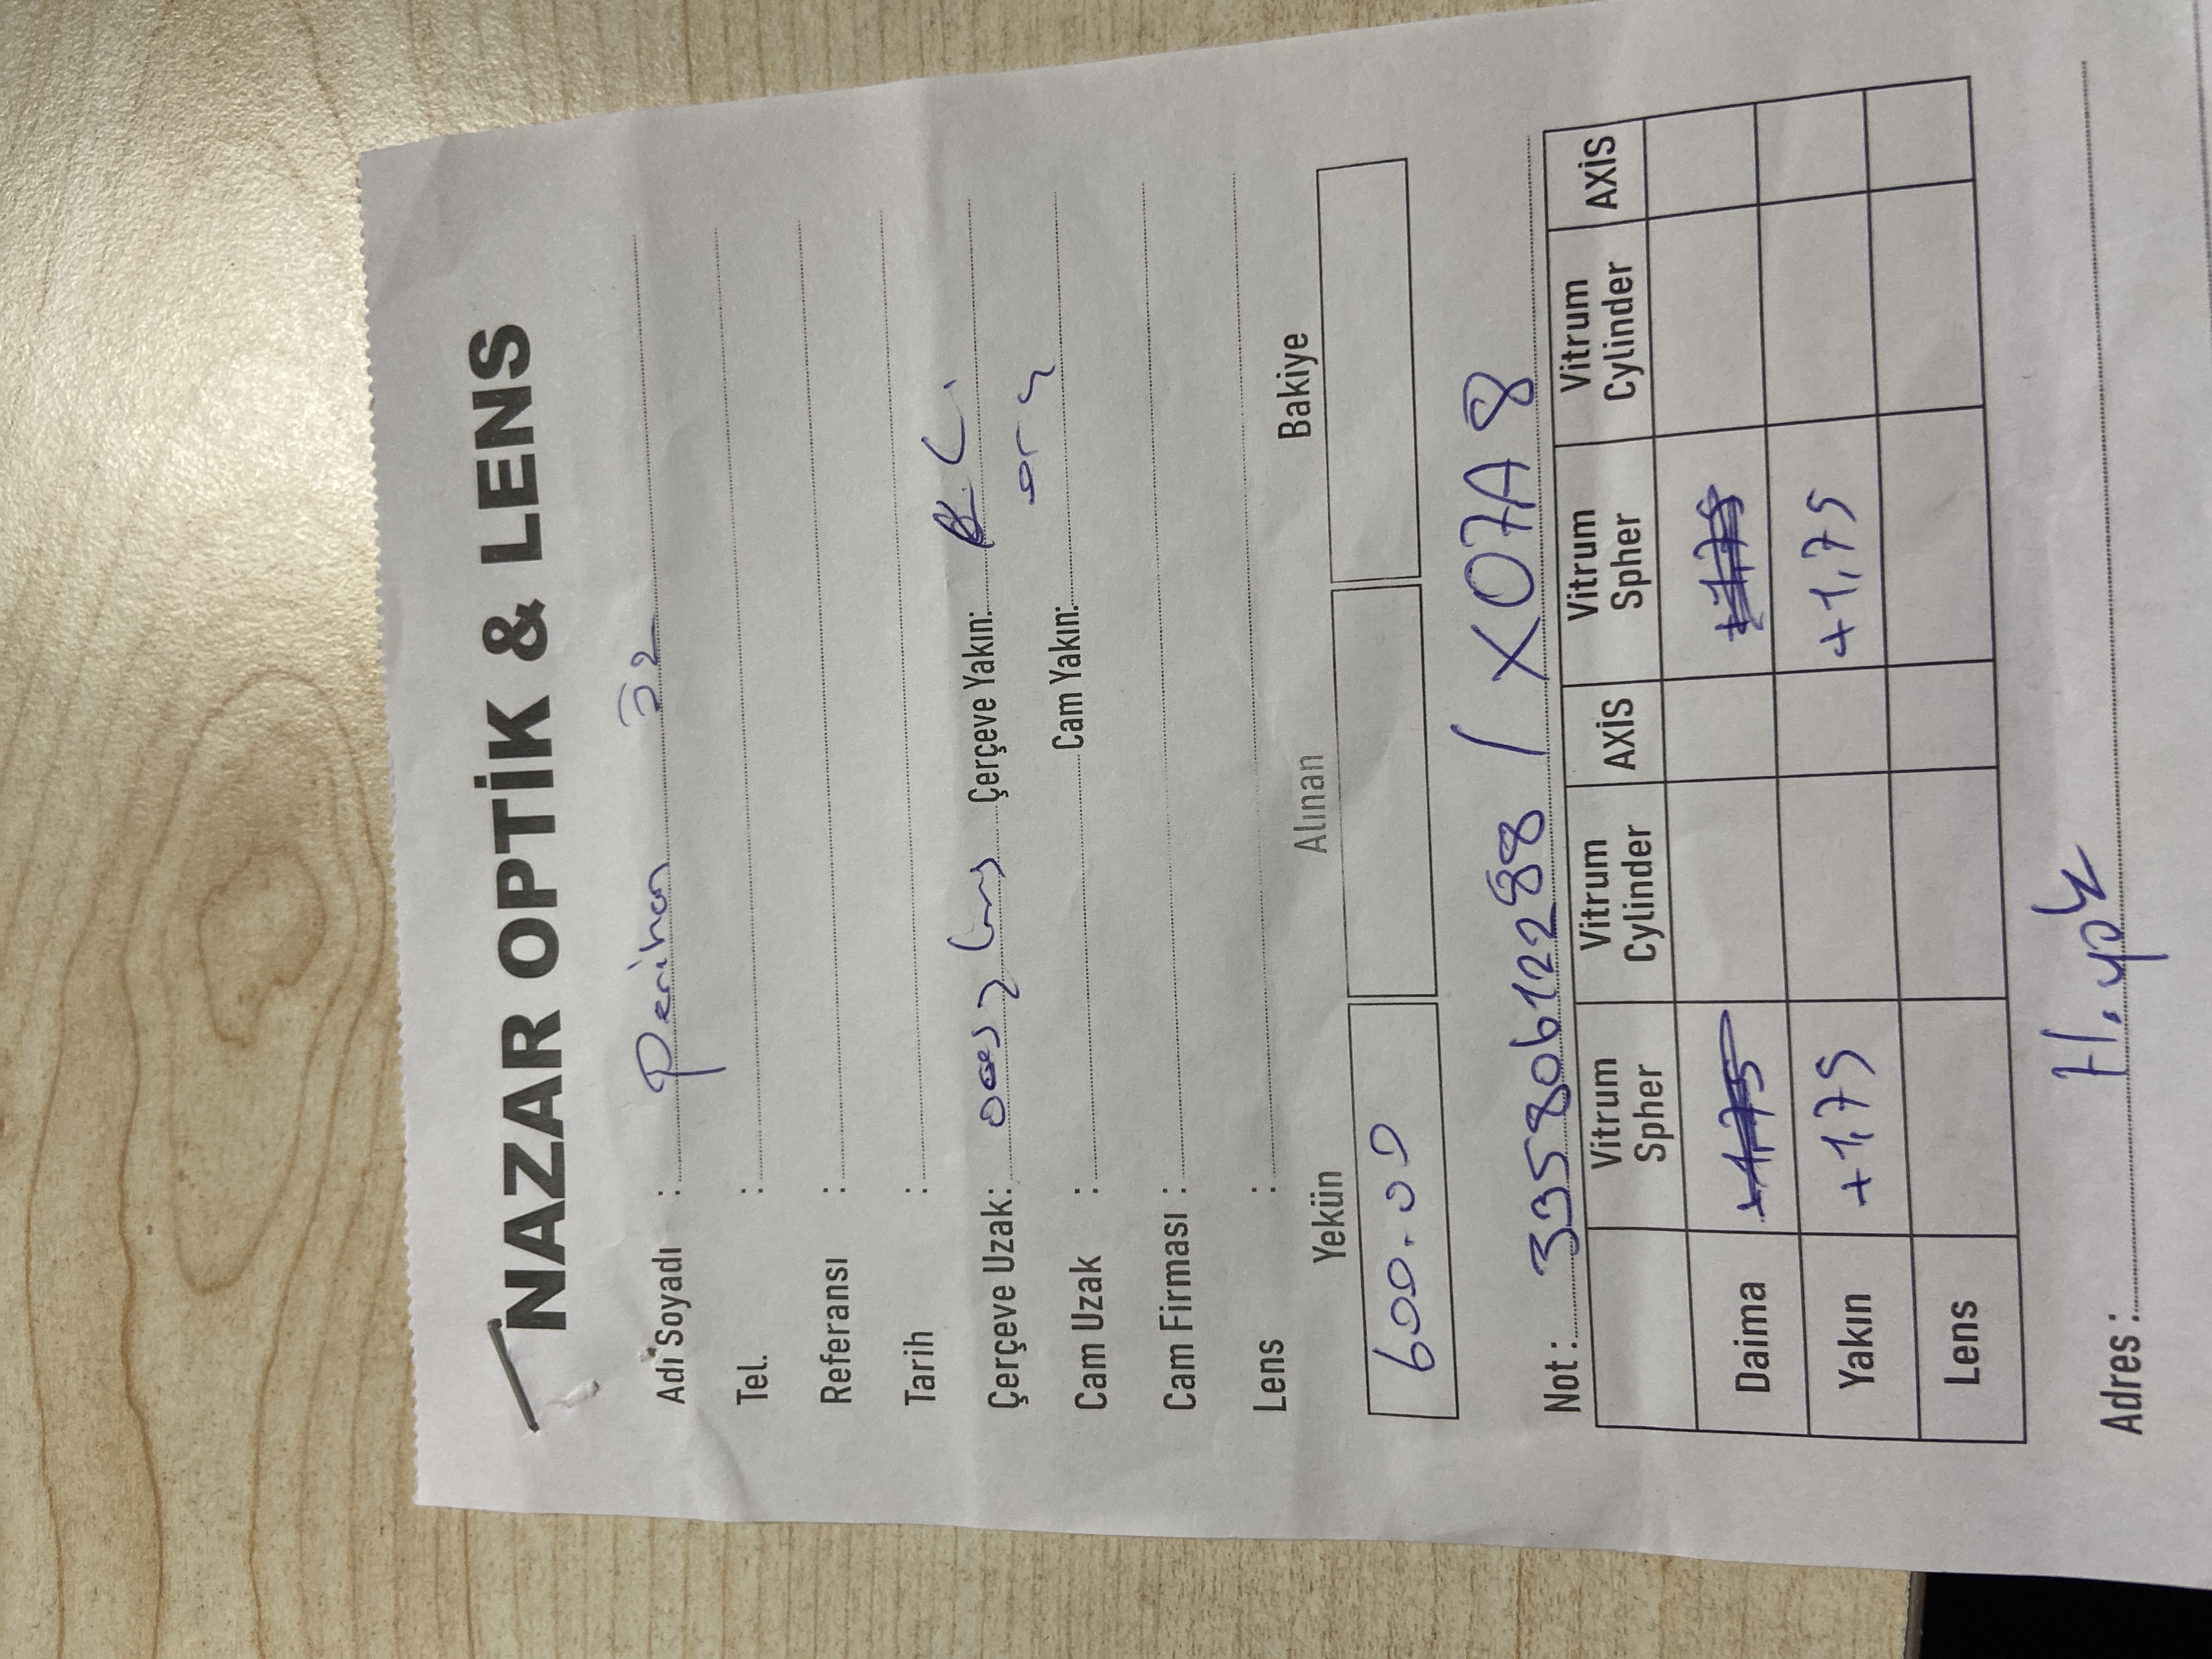 NAZAR OPTİK & LENS
Adı Soyadı : Perihan Öz
Tel. :
Referansı :
Tarih :
Çerçeve Uzak: Çerçeve Yakın:
Cam Uzak : Cam Yakın: org
Cam Firması :
Lens :
Yekün Alınan Bakiye
600.00
Not : 33580612288 / X07A8
Vitrum Spher Vitrum Cylinder AXİS Vitrum Spher Vitrum Cylinder AXİS
Daima +1,75 +1,75
Yakın +1,75 +1,75
Lens
Adres : H.yok